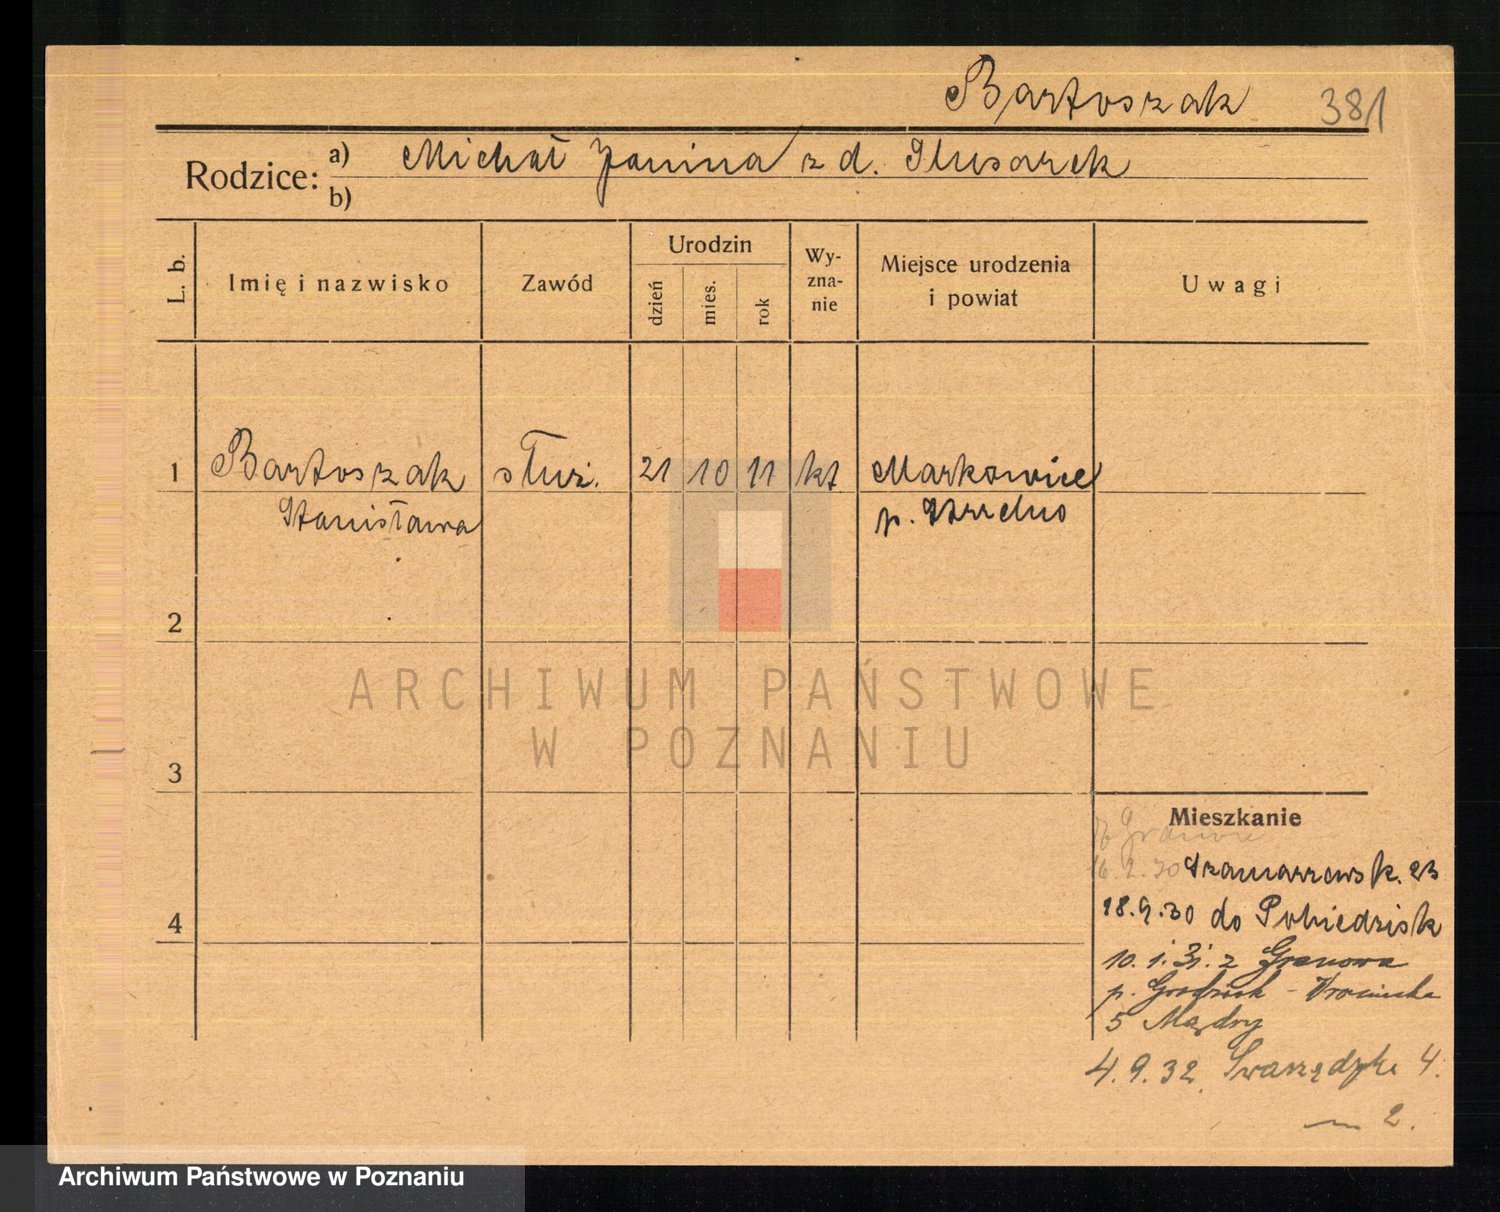 Bartoszak 381
Rodzice: a) Michał Janina z d. Ślusarek
b)
L. b. Imię i nazwisko Zawód Urodzin dzień mies. rok Wy-zna-nie Miejsce urodzenia i powiat Uwagi
1 Bartoszak służ. 21 10 11 kt Markowice
Stanisława p. Strzelno
2
ARCHIWUM PAŃSTWOWE
W POZNANIU
3
Mieszkanie
z Granowa
16.2.30 Szamarzewsk. 23
4 18.9.30 do Pobiedzisk
10.1.31. z Granowa
p. Grodzisk -
5 Mądry
4.9.32. Swarzędzka 4.
m 2.
Archiwum Państwowe w Poznaniu